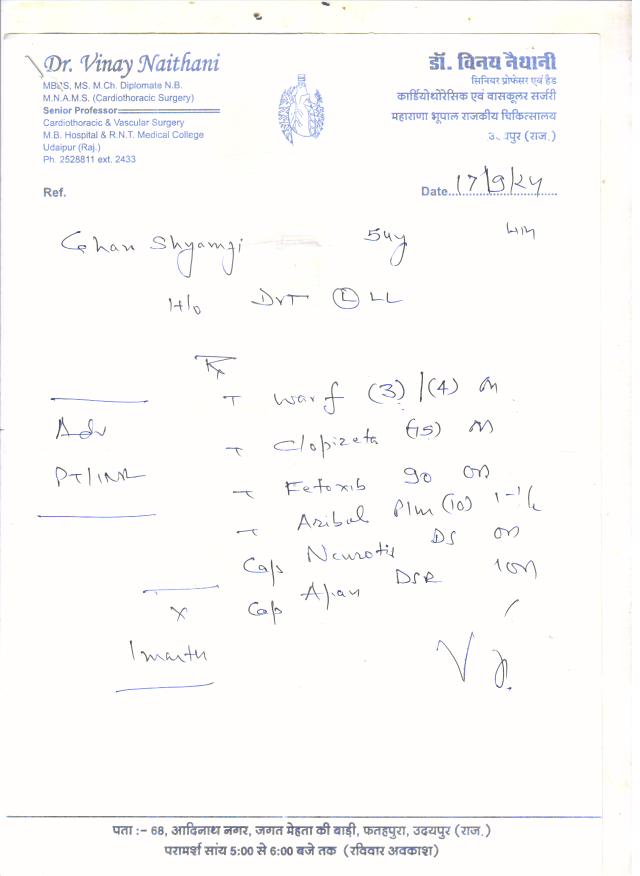 Dr. Vinay Naithani
MBBS, MS. M.Ch. Diplomate N.B.
M.N.A.M.S. (Cardiothoracic Surgery)
Senior Professor
Cardiothoracic & Vascular Surgery
M.B. Hospital & R.N.T. Medical College
Udaipur (Raj.)
Ph. 2528811 ext. 2433
डॉ. विनय नैथानी
सिनियर प्रोफेसर एवं हैड
कार्डियोथोरेसिक एवं वासकूलर सर्जरी
महाराणा भूपाल राजकीय चिकित्सालय
उदयपुर (राज.)
Ref.
Date 17/9/24
Ghan Shyamji 54y
H/o DVT (L) LL
Rx
T Warf (3) / (4) on
Adv
T Clopizeta (75) on
PT/INR
T Fetoxib 90 on
T Plm (10)
Cap DS on
Cap DSR on
x
1 month
पता :- 68, आदिनाथ नगर, जगत मेहता की बाड़ी, फतहपुरा, उदयपुर (राज.)
परामर्श सांय 5:00 से 6:00 बजे तक (रविवार अवकाश)